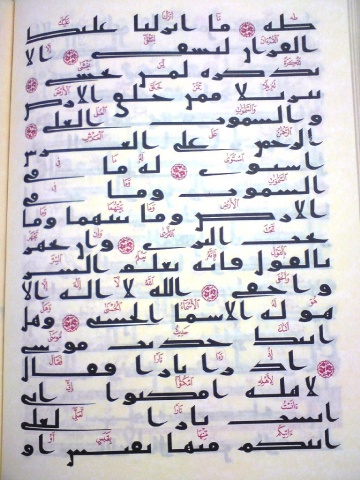 طه ما انزلنا عليك
القران لتشقى الا
تذكرة لمن يخشى
تنزيلا ممن خلق الارض
والسموت العلى
الرحمن على العرش
استوى له ما في
السموت وما في
الارض وما بينهما وما
تحت الثرى وان تجهر
بالقول فانه يعلم السر
واخفى الله لا اله الا
هو له الاسما الحسنى وهل
اتيك حديث موسى
اذ را نارا فقال
لاهله امكثوا اني
انست نارا لعلي
اتيكم منها بقبس او